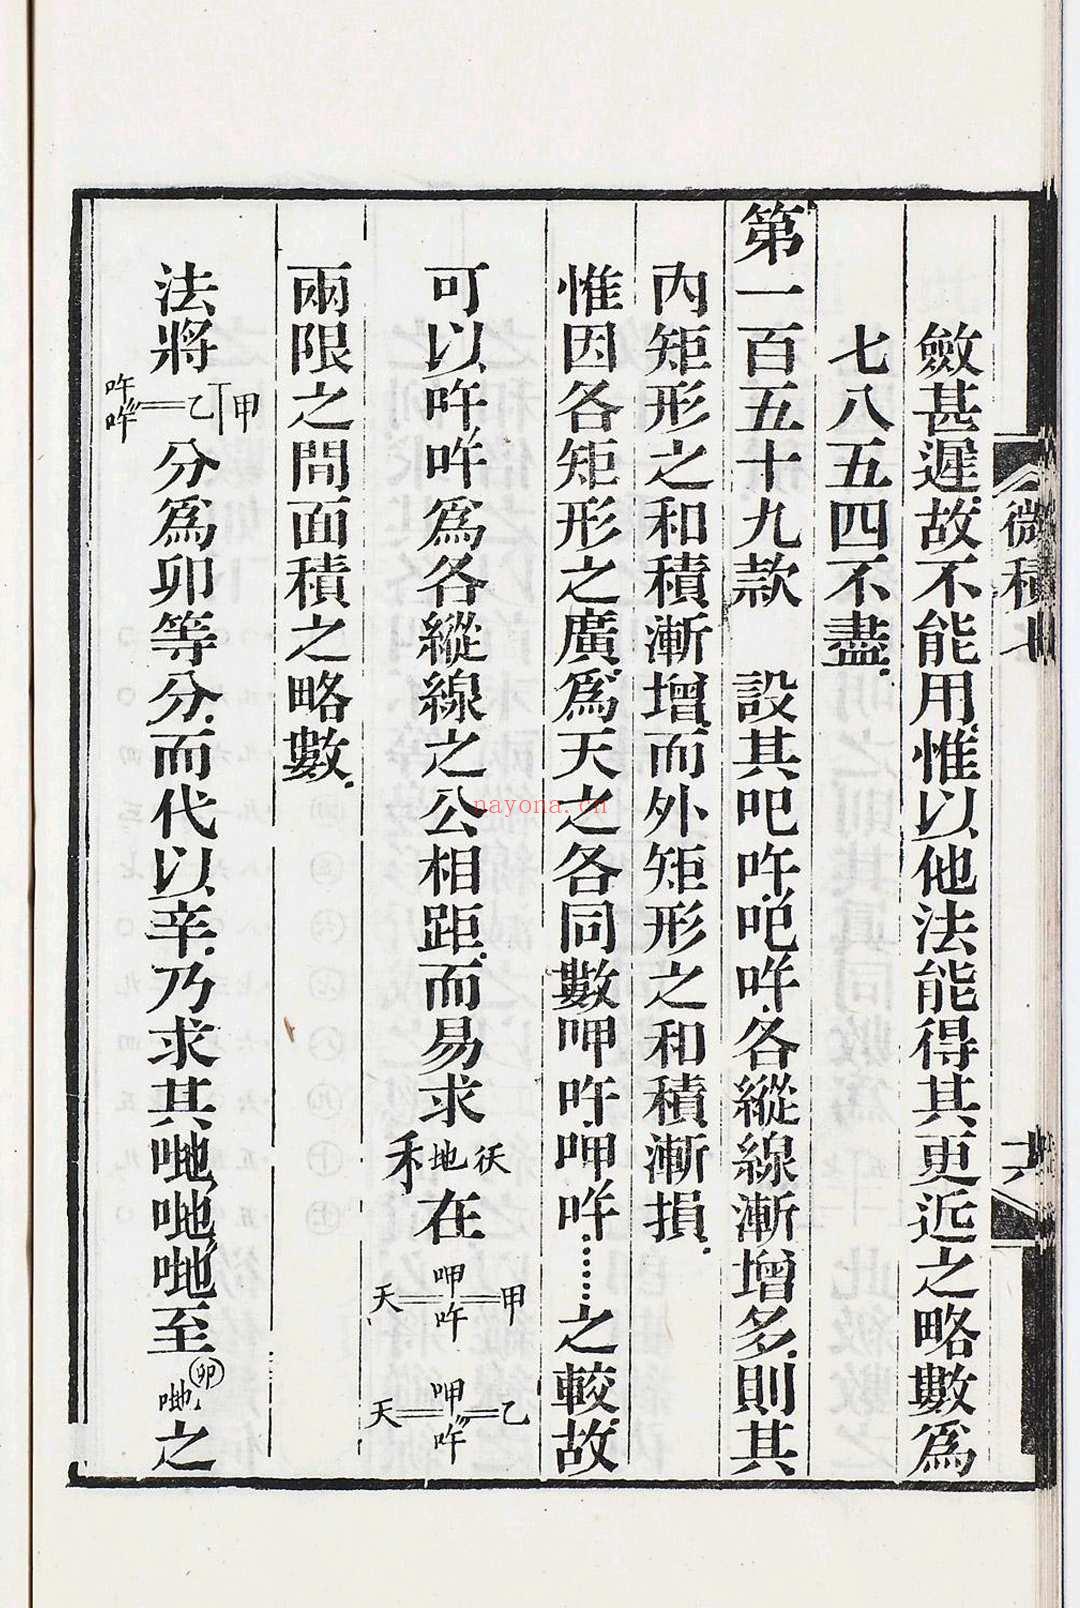 微積七
十六
斂甚遲故不能用惟以他法能得其更近之略數爲
七八五四不盡
第一百五十九款　設其吧吘吧吽各縱線漸增多則其
內矩形之和積漸增而外矩形之和積漸損
惟因各矩形之廣爲天之各同數呷吘呷吽……之較故
可以吘吽爲各縱線之公相距而易求禾地彳天在天＝呷吘＝甲天＝呷吘＝乙
兩限之間面積之略數
法將吘吽＝乙丅甲分爲卯等分而代以辛乃求其哋哋哋至哋㊞之
nayona.cn